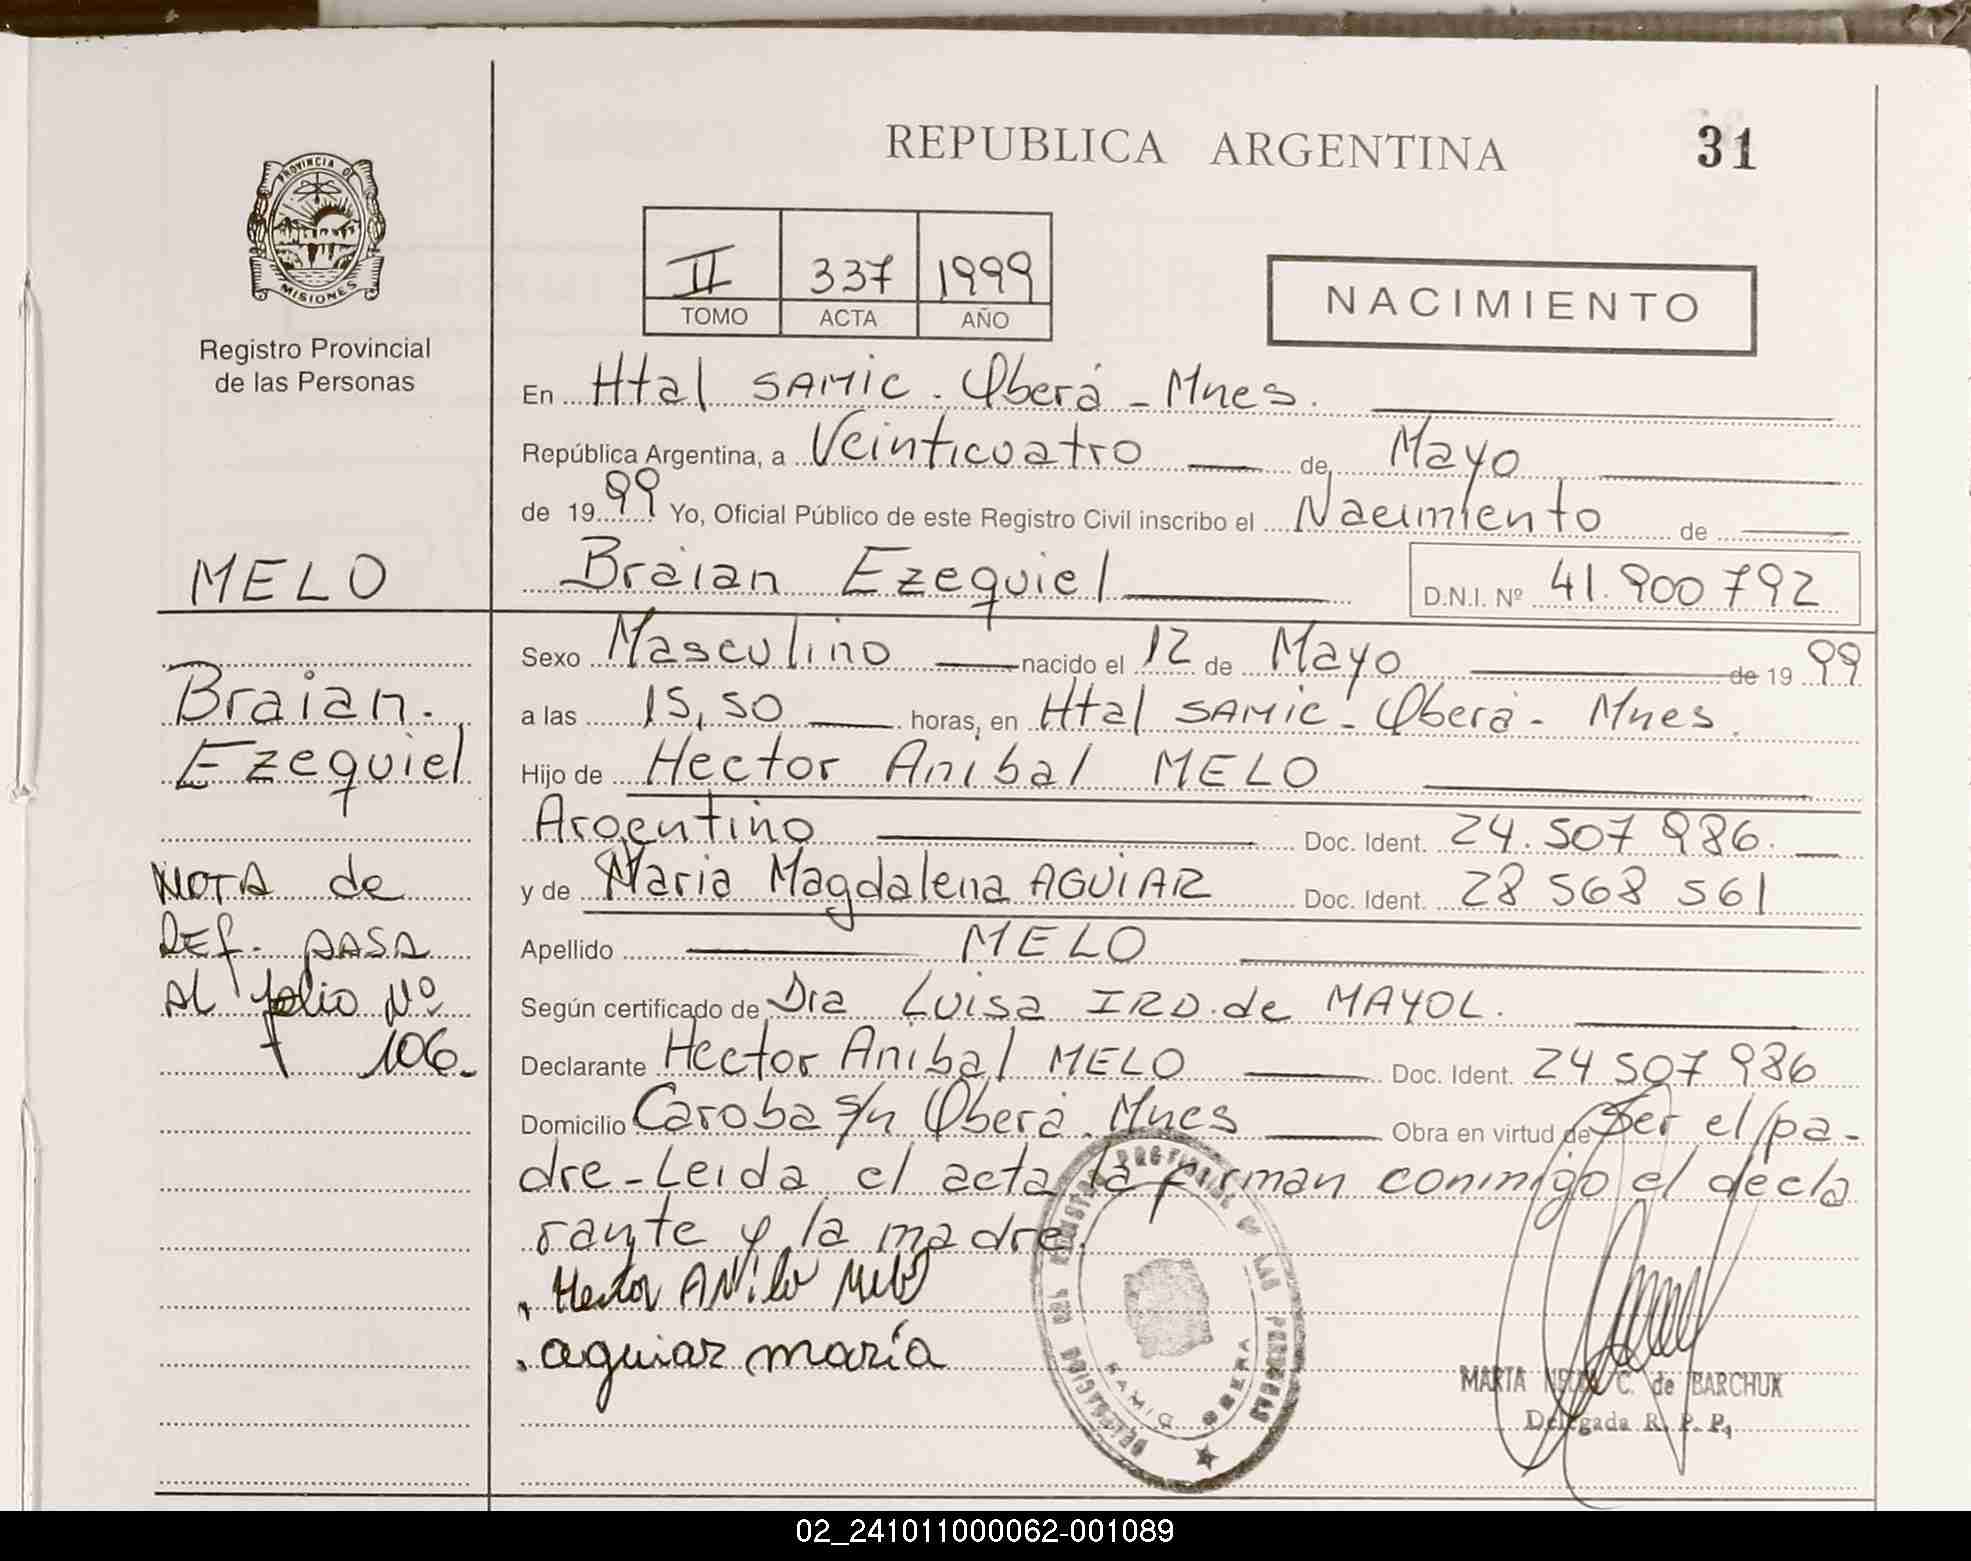 REPUBLICA ARGENTINA
31
PROVINCIA DE
MISIONES
Registro Provincial
de las Personas
II 337 1999
TOMO ACTA AÑO
NACIMIENTO
En Htal SAMIC. Oberá - Mnes.
República Argentina, a Veinticuatro de Mayo
de 1999 Yo, Oficial Público de este Registro Civil inscribo el Nacimiento de
Braian Ezequiel D.N.I. Nº 41.900 792
MELO
Braian.
Ezequiel
NOTA de
REf. PASA
Al folio Nº
106.-
Sexo Masculino nacido el 12 de Mayo de 1999
a las 15,50 horas, en Htal SAMIC - Oberá - Mnes.
Hijo de Hector Anibal MELO
Argentino Doc. Ident. 24.507 986.
y de Maria Magdalena AGUIAR Doc. Ident. 28 568 561
Apellido MELO
Según certificado de Dra Luisa IRD. de MAYOL.
Declarante Hector Anibal MELO Doc. Ident. 24 507 986
Domicilio Caroba s/n Oberá. Mnes Obra en virtud de Ser el pa-
dre - Leida el acta la firman conmigo el decla
rante y la madre.
Hector Melo
aguiar maría
DELEGACION DEL REGISTRO PROVINCIAL DE LAS PERSONAS
OBERA
MARTA C. de BARCHUK
Delegada R. P. P.
02_241011000062-001089